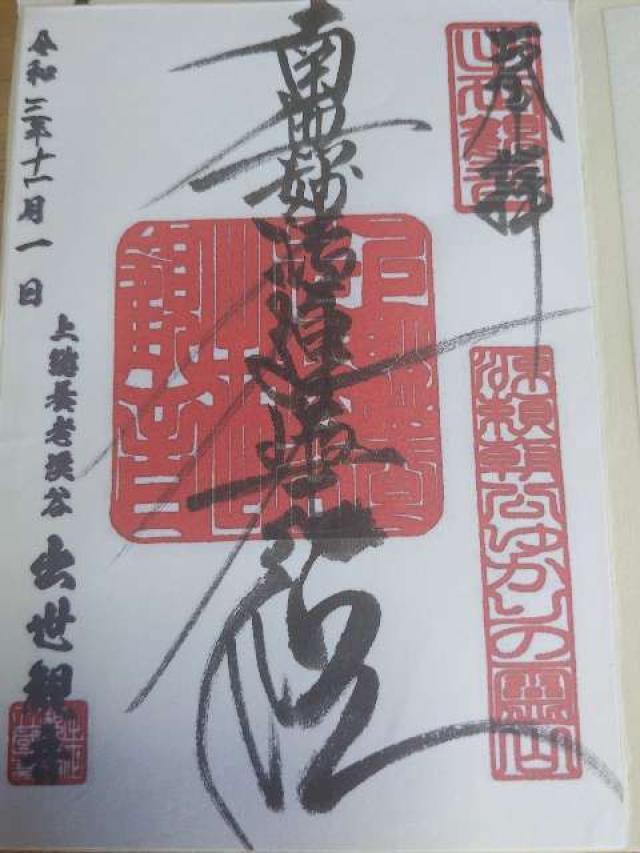 奉拝
源頼朝公ゆかりの
南無妙法蓮華経
観音
令和三年十一月一日
上総養老渓谷 出世観音